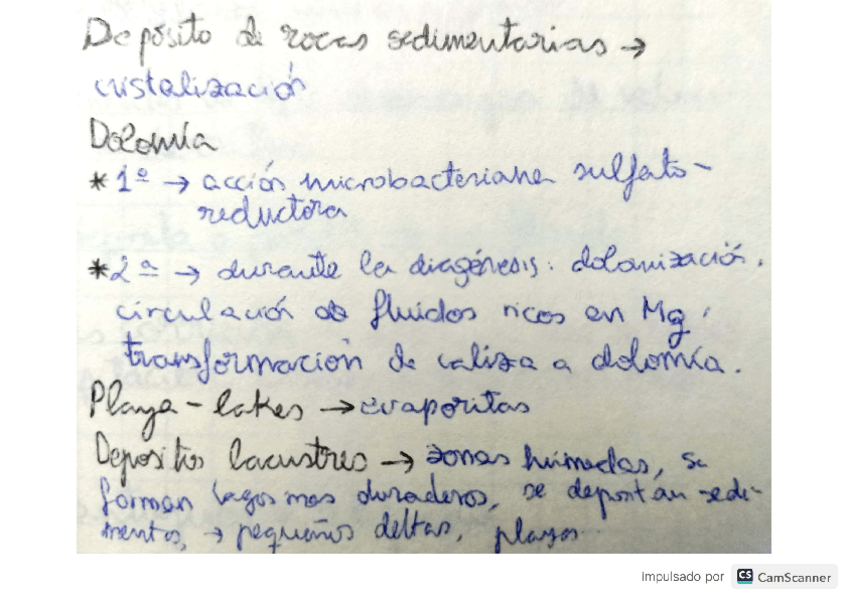 Depósito de rocas sedimentarias →
cristalización
Dolomía
* 1ª → acción microbacteriana sulfato-
reductora
* 2ª → durante la diagénesis: dolomización.
circulación de fluidos ricos en Mg,
transformación de caliza a dolomía.
Playa-lakes → evaporitas
Depositos lacustres → zonas húmedas, se
forman lagos mas duraderos, se depositan sedi-
mentos, → pequeños deltas, playas
Impulsado por CS CamScanner